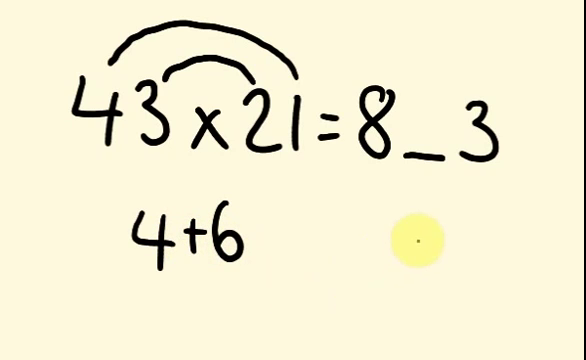 43 x 21 = 8_3
4+6